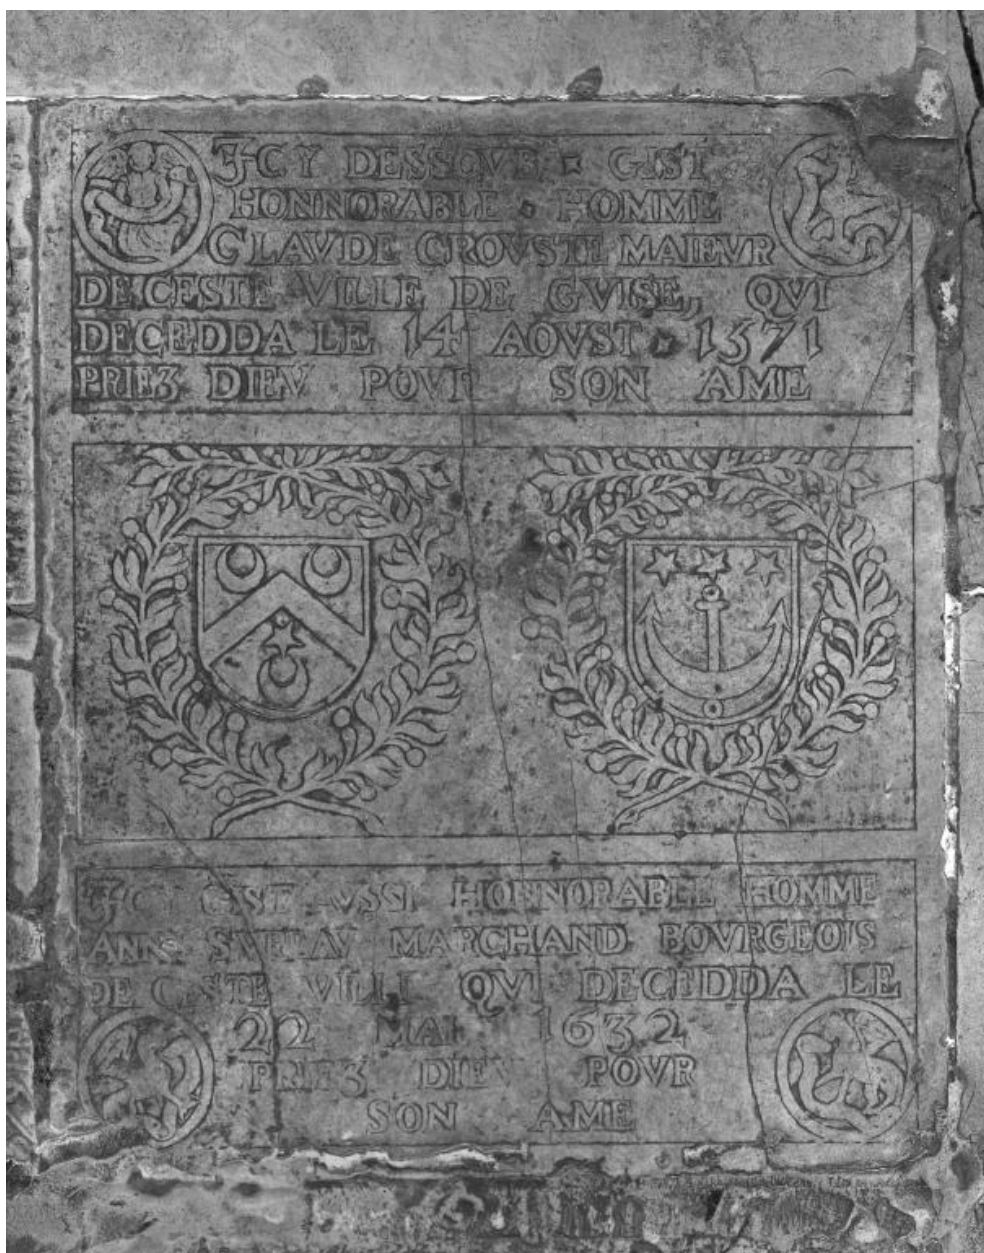 JCY DESSOVB GIST
HONNORABLE HOMME
CLAVDE CROVSTE MAIEVR
DE CESTE VILLE DE GVISE, QVI
DECEDDA LE 14 AOVST 1571
PRIEZ DIEV POVR SON AME
JCY GIST AVSSI HONNORABLE HOMME
MARCHAND BOVRGEOIS
DE CESTE VILLE QVI DECEDDA LE
22 MAI 1632
PRIEZ DIEV POVR
SON AME